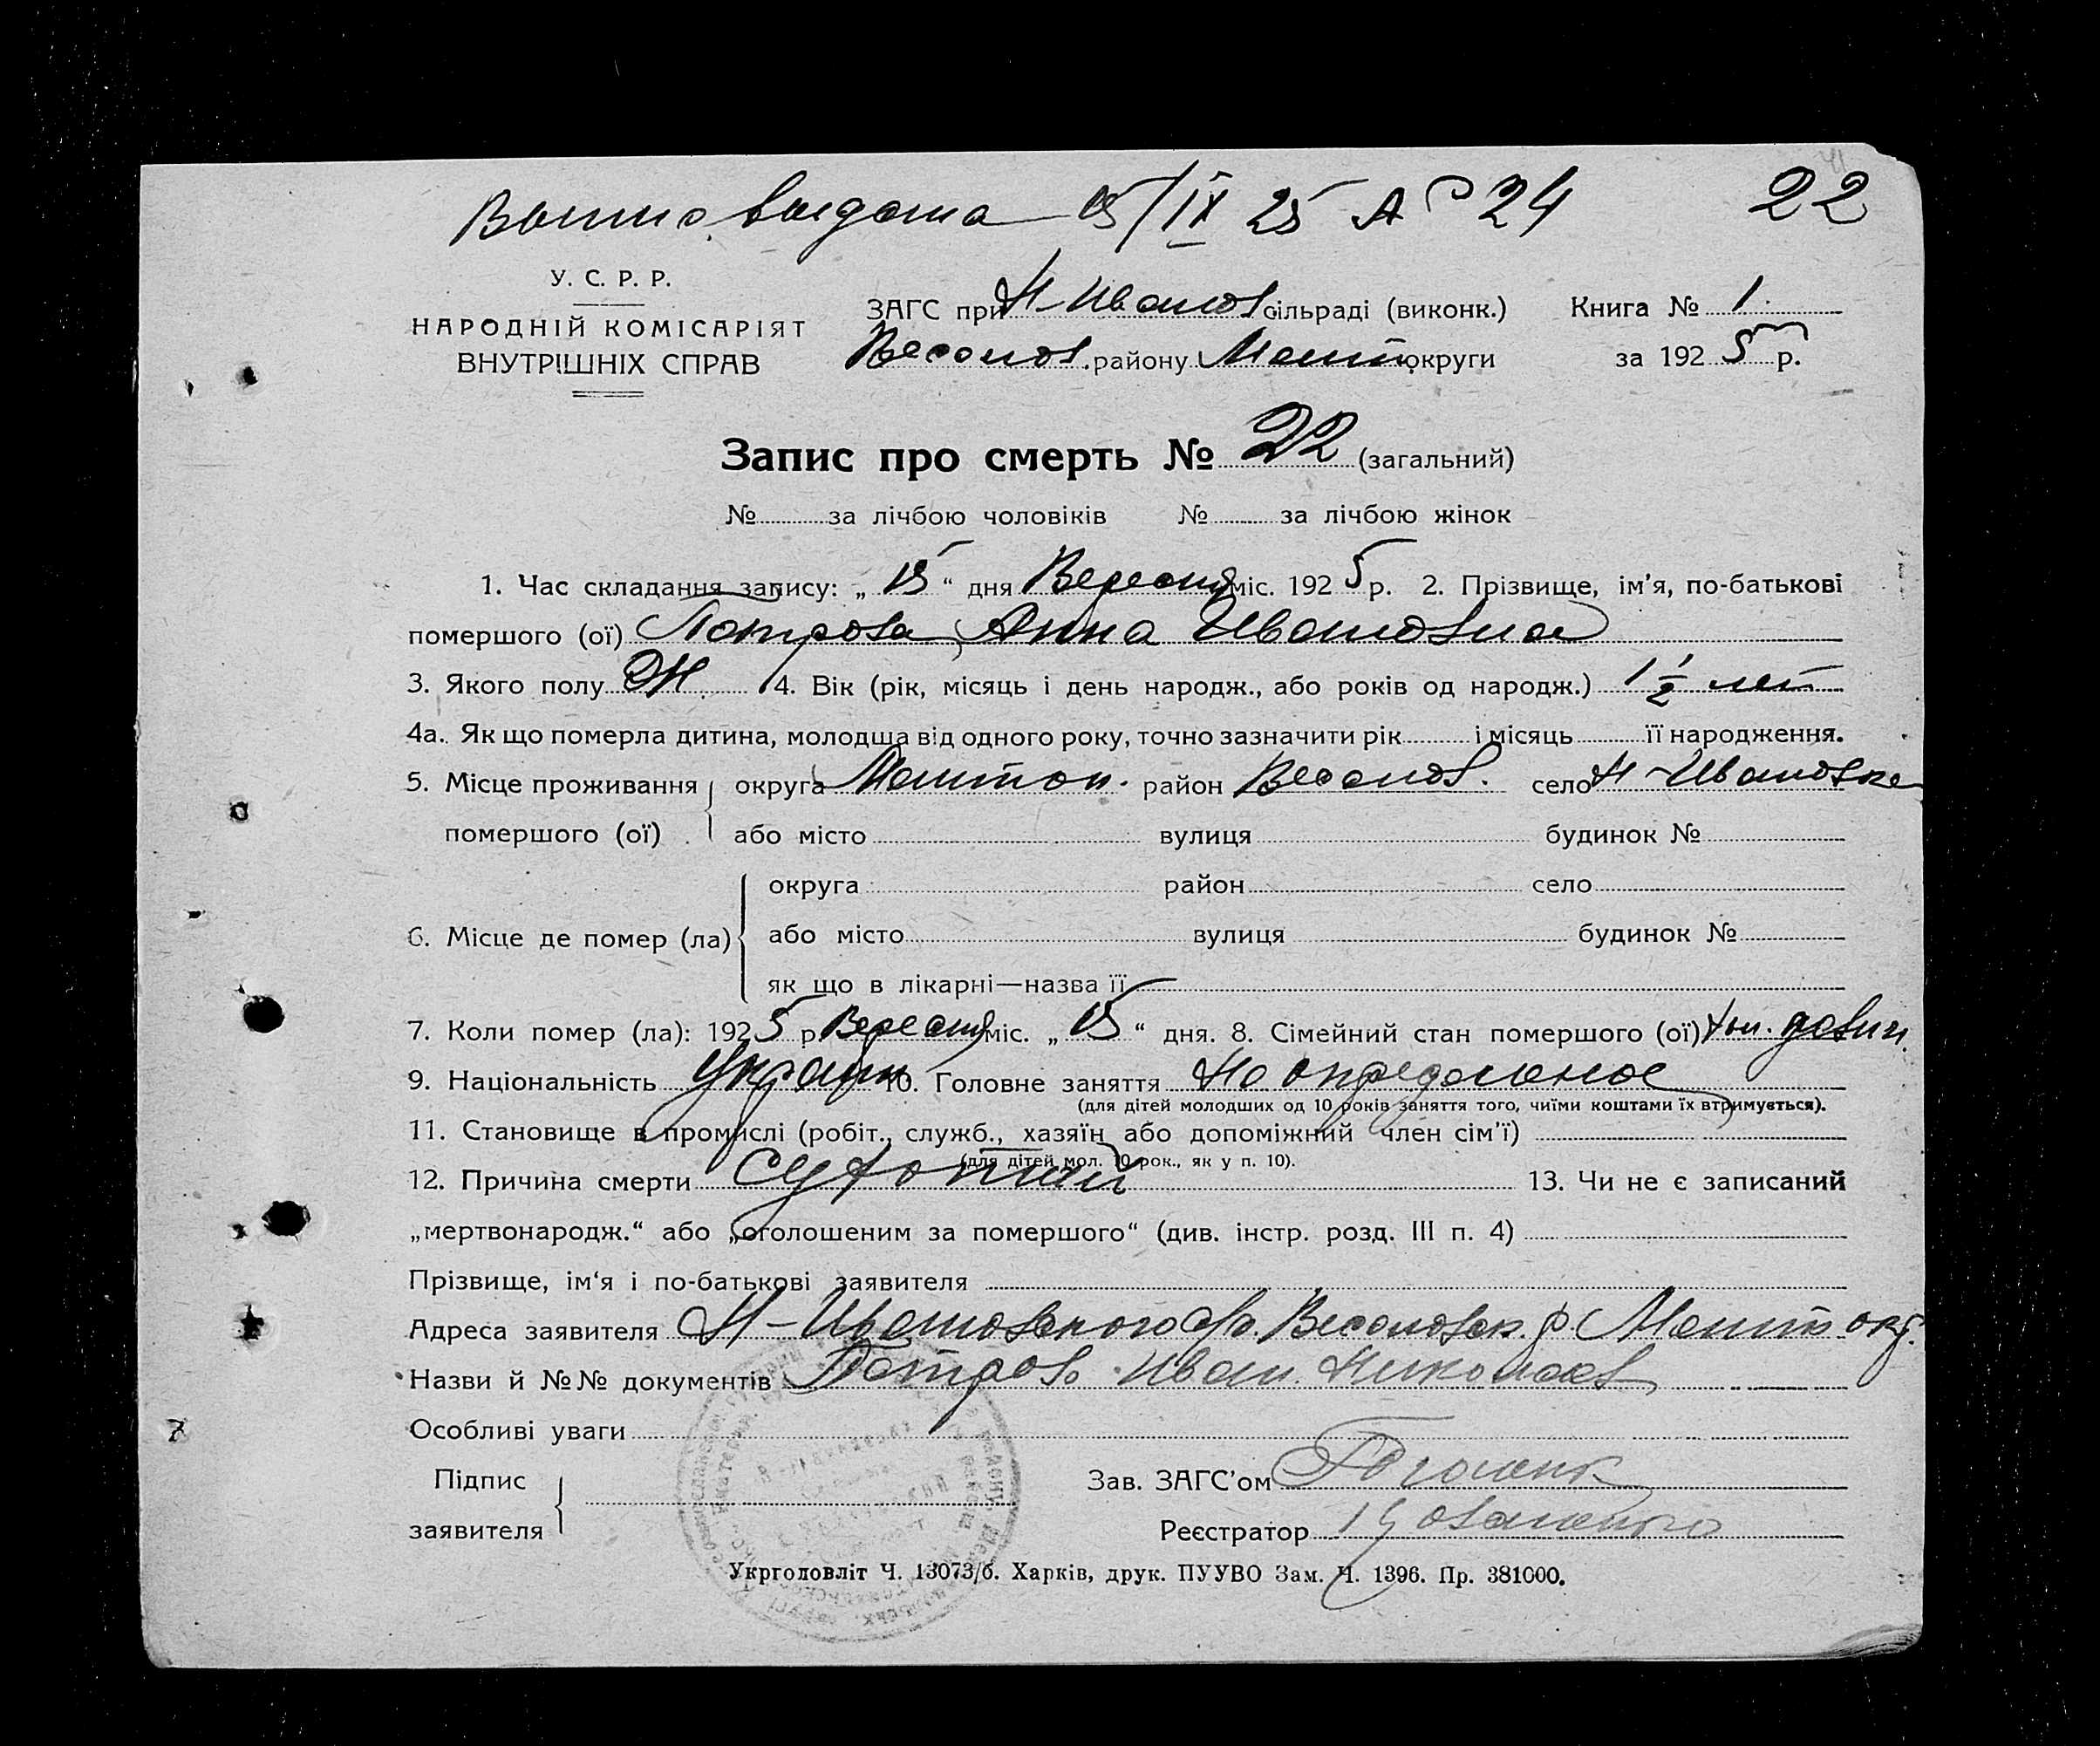 Выпис выдана 15/IX 25 № 24 22
У. С. Р. Р.
НАРОДНІЙ КОМІСАРІЯТ
ВНУТРІШНІХ СПРАВ
ЗАГС при Н-Иванов. сільраді (виконк.) Книга № 1
Веселов. району Меліт. округи за 1925 р.
Запис про смерть № 22 (загальний)
№ за лічбою чоловіків № за лічбою жінок
1. Час складання запису: „15“ дня Вересня міс. 1925 р. 2. Прізвище, ім’я, по-батькові
помершого (ої) Петрова Анна Ивановна
3. Якого полу Ж. 4. Вік (рік, місяць і день народж., або років од народж.) 1 1/2 лет
4а. Як що померла дитина, молодша від одного року, точно зазначити рік і місяць її народження.
5. Місце проживання округа Мелітоп. район Веселов. село Н-Ивановка
помершого (ої) або місто вулиця будинок №
округа район село
6. Місце де помер (ла) або місто вулиця будинок №
як що в лікарні—назва її
7. Коли помер (ла): 1925 р. Вересня міс. „15“ дня. 8. Сімейний стан помершого (ої)
9. Національність Украін 10. Головне заняття Не определенное
(для дітей молодших од 10 років заняття того, чиїми коштами їх втримується).
11. Становище в промислі (робіт., служб., хазяїн або допоміжний член сім’ї)
(для дітей мол. 10 рок., як у п. 10).
12. Причина смерти 13. Чи не є записаний
„мертвонародж.“ або „оголошеним за помершого“ (див. інстр. розд. III п. 4)
Прізвище, ім‘я і по-батькові заявителя
Адреса заявителя Н-Ивановского с/р. Веселовск. р. Меліт. окр.
Назви й №№ документів Петров Иван Николаев
Особливі уваги
Підпис Зав. ЗАГС’ом
заявителя Реєстратор
Укрголовліт Ч. 13073/б. Харків, друк. ПУУВО Зам. Ч. 1396. Пр. 381000.